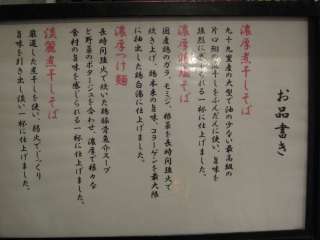 お品書き
濃厚煮干しそば
九十九里産の大型で油の少ない最高級の
片口鰯の煮干しをふんだんに使い、旨味を
強烈にきかせた一杯に仕上げました。
濃厚鶏塩そば
国産鶏のガラ、モミジ、胡麻を長時間強火で
炊き上げ、鶏本来の旨味、コラーゲンを最大限
に抽出した鶏白湯に仕上げました。
濃厚つけ麺
長時間強火で炊いた鶏豚骨魚介スープ
と野菜のポタージュを合わせ、濃厚で様々な
食材の旨味を感じられる一杯に仕上げました。
淡麗煮干しそば
厳選した煮干しを使い、弱火でじっくり
旨味を引き出し淡い一杯に仕上げました。